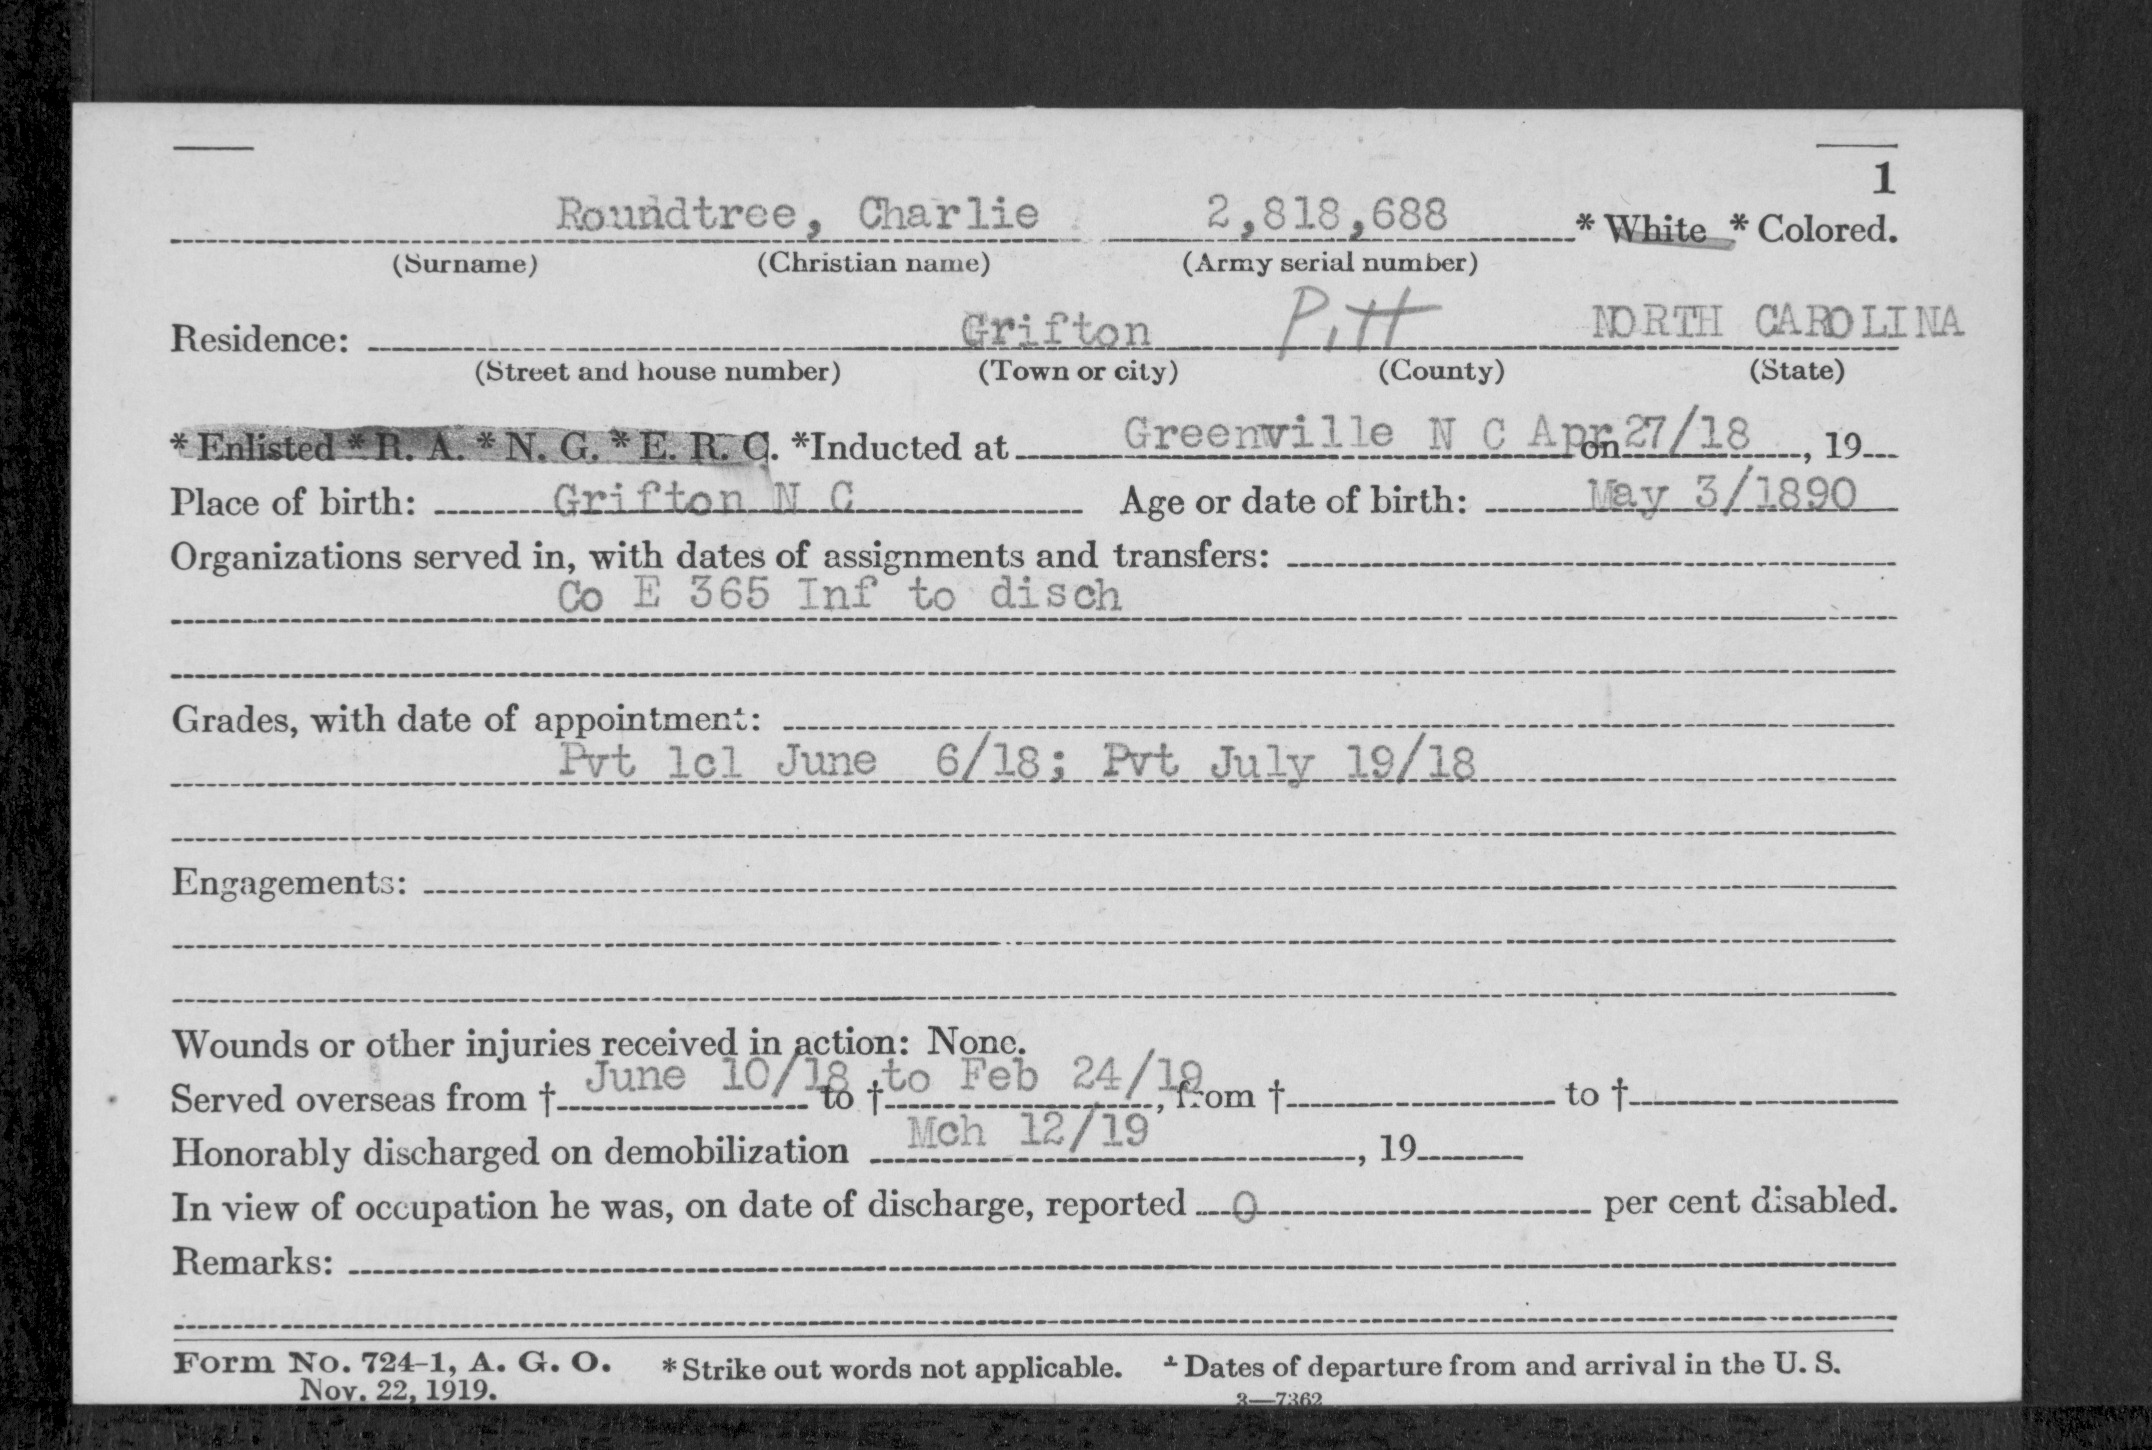 1
Roundtree, Charlie 2,818,688 * White * Colored.
(Surname) (Christian name) (Army serial number)
Residence: Grifton Pitt NORTH CAROLINA
(Street and house number) (Town or city) (County) (State)
* Enlisted * R. A. * N. G. * E. R. C. *Inducted at Greenville N C Apr on 27/18, 19
Place of birth: Grifton N C Age or date of birth: May 3/1890
Organizations served in, with dates of assignments and transfers:
Co E 365 Inf to disch
Grades, with date of appointment:
Pvt 1cl June 6/18; Pvt July 19/18
Engagements:
Wounds or other injuries received in action: None.
Served overseas from † June 10/18 to † to Feb 24/19, from † to †
Honorably discharged on demobilization Mch 12/19, 19
In view of occupation he was, on date of discharge, reported 0 per cent disabled.
Remarks:
Form No. 724-1, A. G. O. * Strike out words not applicable. † Dates of departure from and arrival in the U. S.
Nov. 22, 1919. 3—7362